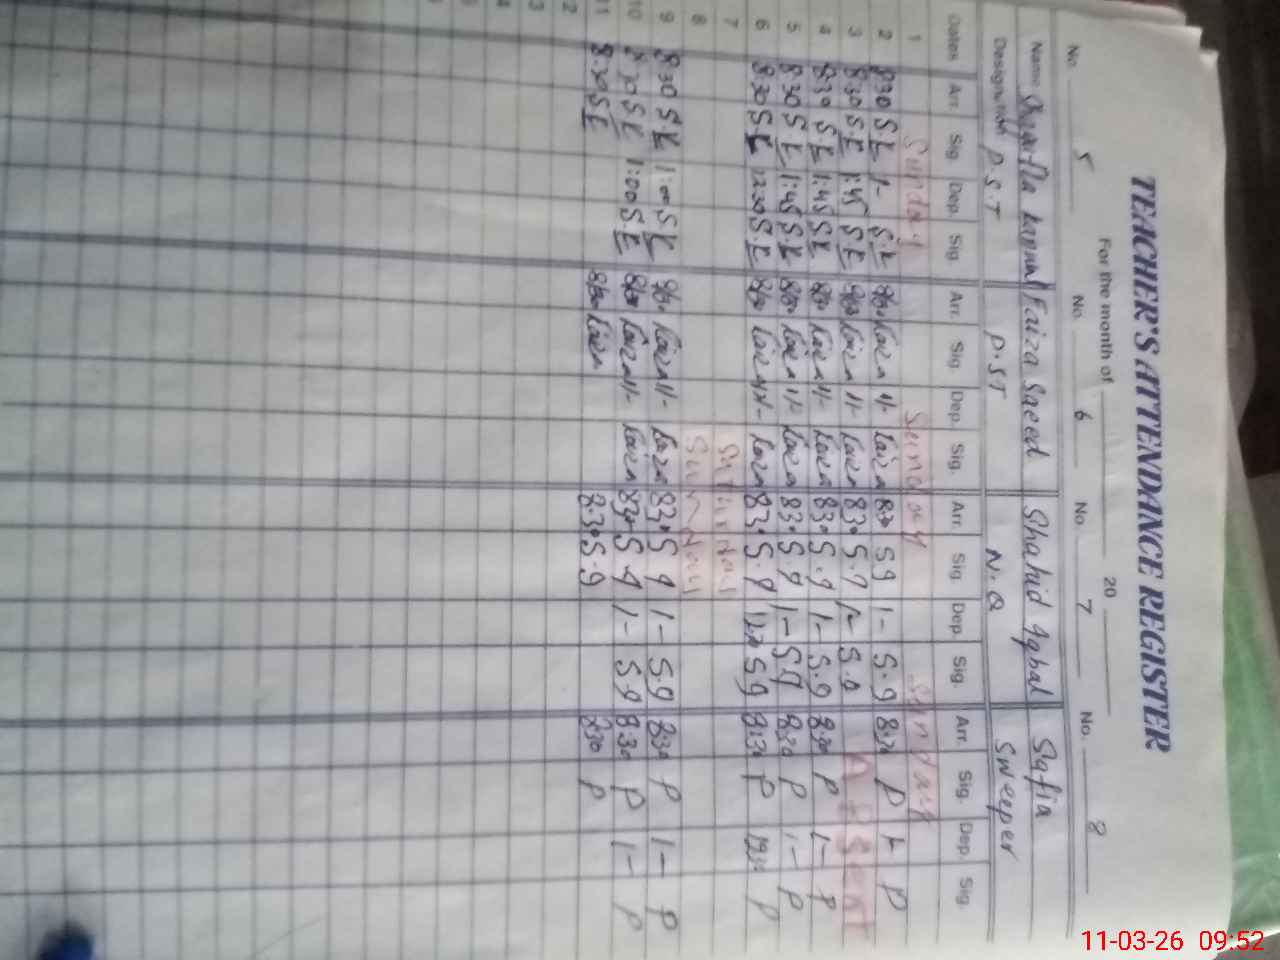 TEACHER'S ATTENDANCE REGISTER
For the month of 20
No. 5 No. 6 No. 7 No. 8
Name Kanwal Faiza Saeed Shahid Iqbal Safia
Designation P.S.T P.ST N.Q Sweeper
Dates Arr. Sig. Dep. Sig. Arr. Sig. Dep. Sig. Arr. Sig. Dep. Sig. Arr. Sig. Dep. Sig.
1 Sunday Sunday Sunday
2 8:30 S.K 1- S.K 8/30 Faiza 1/- Faiza 8:30 S9 1- S.9 8:30 P 1- P
3 8:30 S.K 1:45 S.K 8/30 Faiza 1/- Faiza 830 S.9 1- S.9 Absent
4 8:30 S.K 1:45 S.K 8/30 Faiza 1/- Faiza 830 S.9 1- S.9 8:30 P 1- P
5 8:30 S.K 1:45 S.K 8/30 Faiza 1/- Faiza 830 S.9 1- S.9 8:30 P 1- P
6 8:30 S.K 12:30 S.K 8/30 Faiza Faiza 830 S.9 12:30 S9 8:30 P 12:30 P
7 Saturday
8 Sunday
9 8:30 S.K 1:00 S.K 8/30 Faiza 1/- Faiza 830 S 9 1- S.9 8:30 P 1- P
10 8:30 S.K 1:00 S.K 8/30 Faiza 1/- Faiza 830 S.9 1- S9 8:30 P 1- P
11 8:30 S.K 8/30 Faiza 8:30 S.9 8:30 P
12
11-03-26 09:52